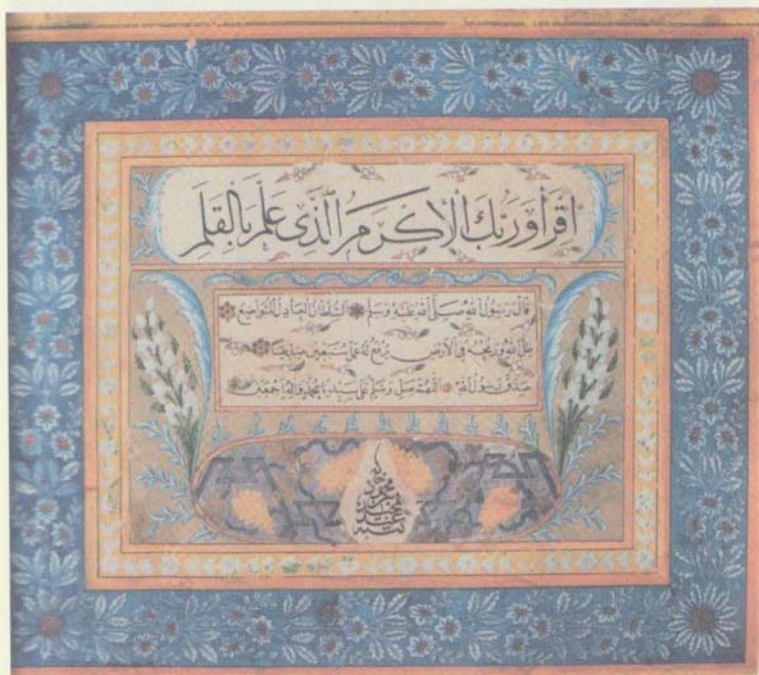 اِقْرَأْ وَرَبُّكَ الْاَكْرَمُ الَّذِى عَلَّمَ بِالْقَلَمِ
قَالَ رَسُولُ اللهِ صَلَّى اللهُ عَلَيْهِ وَسَلَّمَ السُّلْطَانُ الْعَادِلُ الْمُتَوَاضِعُ
ظِلُّ اللهِ وَرُمْحُهُ فِى الْاَرْضِ يُرْفَعُ لَهُ عَمَلُ سَبْعِينَ صِدِّيقًا
صَدَقَ رَسُولُ اللهِ اَللّٰهُمَّ صَلِّ وَسَلِّمْ عَلَى سَيِّدِنَا مُحَمَّدٍ وَاٰلِهِ اَجْمَعِينَ
كتبه عبد المجيد بن محمود خان